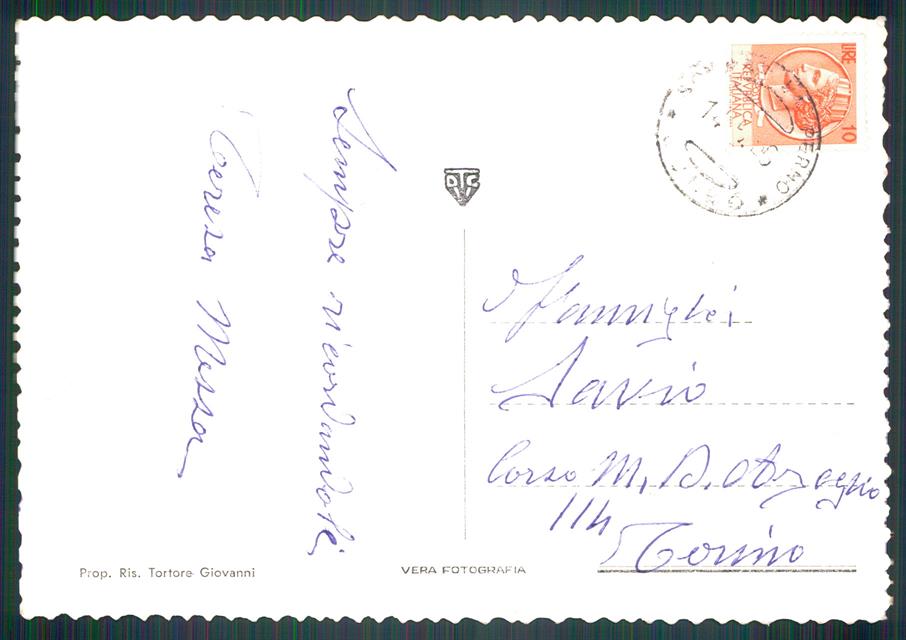 Sempre ricordandoti
Teresa Messa
Famiglia
Savio
Corso M. D. Azeglio
114
Torino
LIRE 10
REPVBBLICA
ITALIANA
Prop. Ris. Tortore Giovanni
VERA FOTOGRAFIA